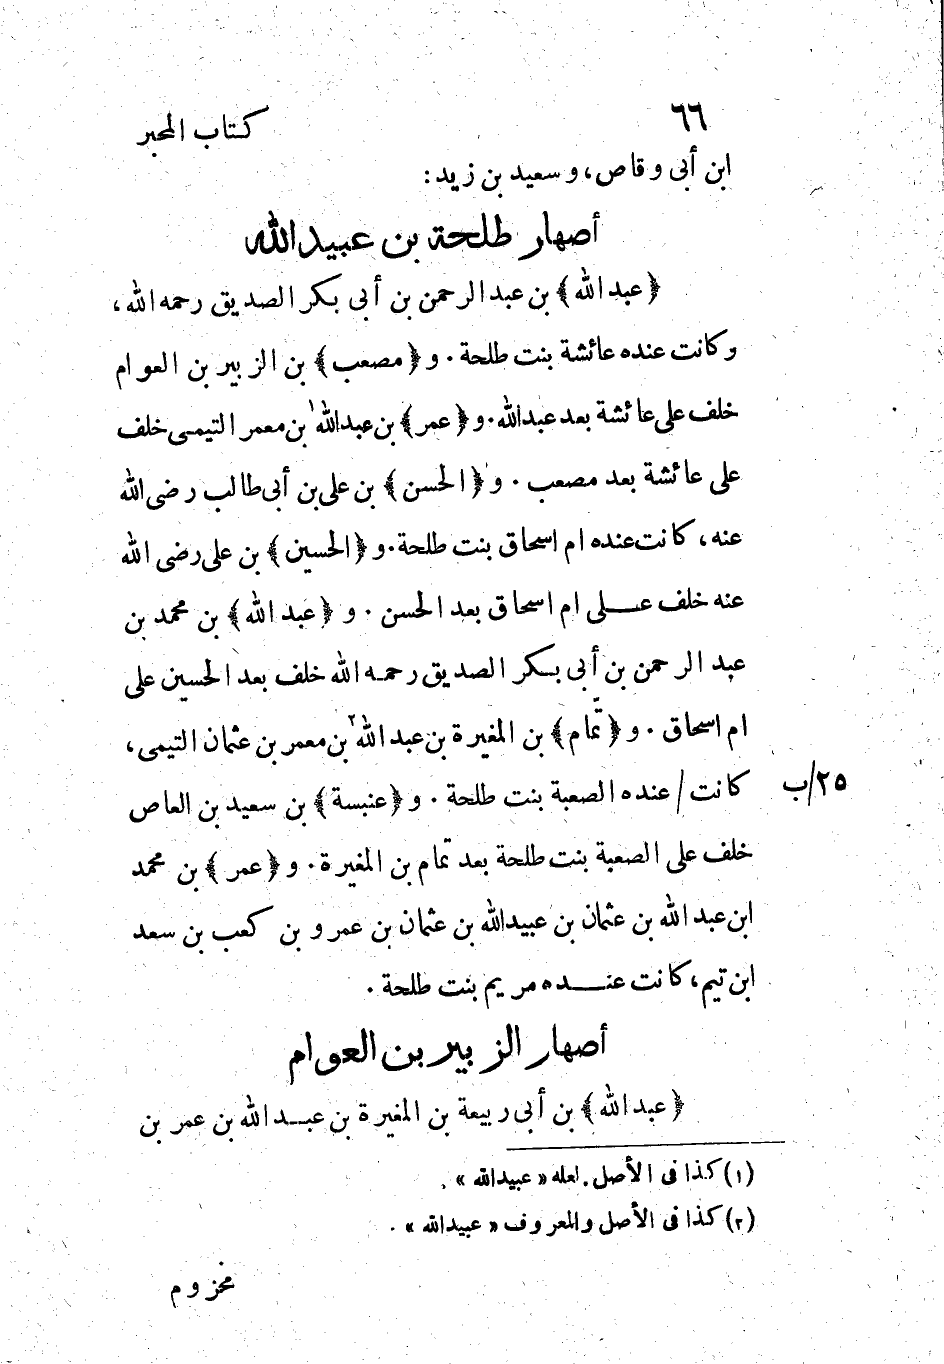 ٦٦ كتاب المحبر
ابن أبى وقاص، وسعيد بن زيد:
أصهار طلحة بن عبيدالله
﴿عبدالله﴾ بن عبد الرحمن بن أبى بكر الصديق رحمه الله،
وكانت عنده عائشة بنت طلحة. و﴿مصعب﴾ بن الزبير بن العوام
خلف على عائشة بعد عبدالله. و﴿عمر﴾ بن عبدالله١ بن معمر التيمى خلف
على عائشة بعد مصعب. و﴿الحسن﴾ بن على بن أبى طالب رضى الله
عنه، كانت عنده ام اسحاق بنت طلحة. و﴿الحسين﴾ بن على رضى الله
عنه خلف عـلى ام اسحاق بعد الحسن. و﴿عبد الله﴾ بن محمد بن
عبد الرحمن بن أبى بكر الصديق رحمه الله خلف بعد الحسين على
ام اسحاق. و﴿تمّام﴾ بن المغيرة بن عبد الله٢ بن معمر بن عثمان التيمى،
كانت / عنده الصعبة بنت طلحة. و﴿عنبسة﴾ بن سعيد بن العاص ٢٥/ب
خلف على الصعبة بنت طلحة بعد تمام بن المغيرة. و﴿عمر﴾ بن محمد
ابن عبد الله بن عثمان بن عبيدالله بن عثمان بن عمرو بن كعب بن سعد
ابن تيم، كانت عنـده مريم بنت طلحة.
أصهار الزبير بن العوام
﴿عبدالله﴾ بن أبى ربيعة بن المغيرة بن عبـد الله بن عمر بن
(١) كذا فى الأصل. لعله «عبيدالله».
(٢) كذا فى الأصل والمعروف «عبيدالله».
مخزوم